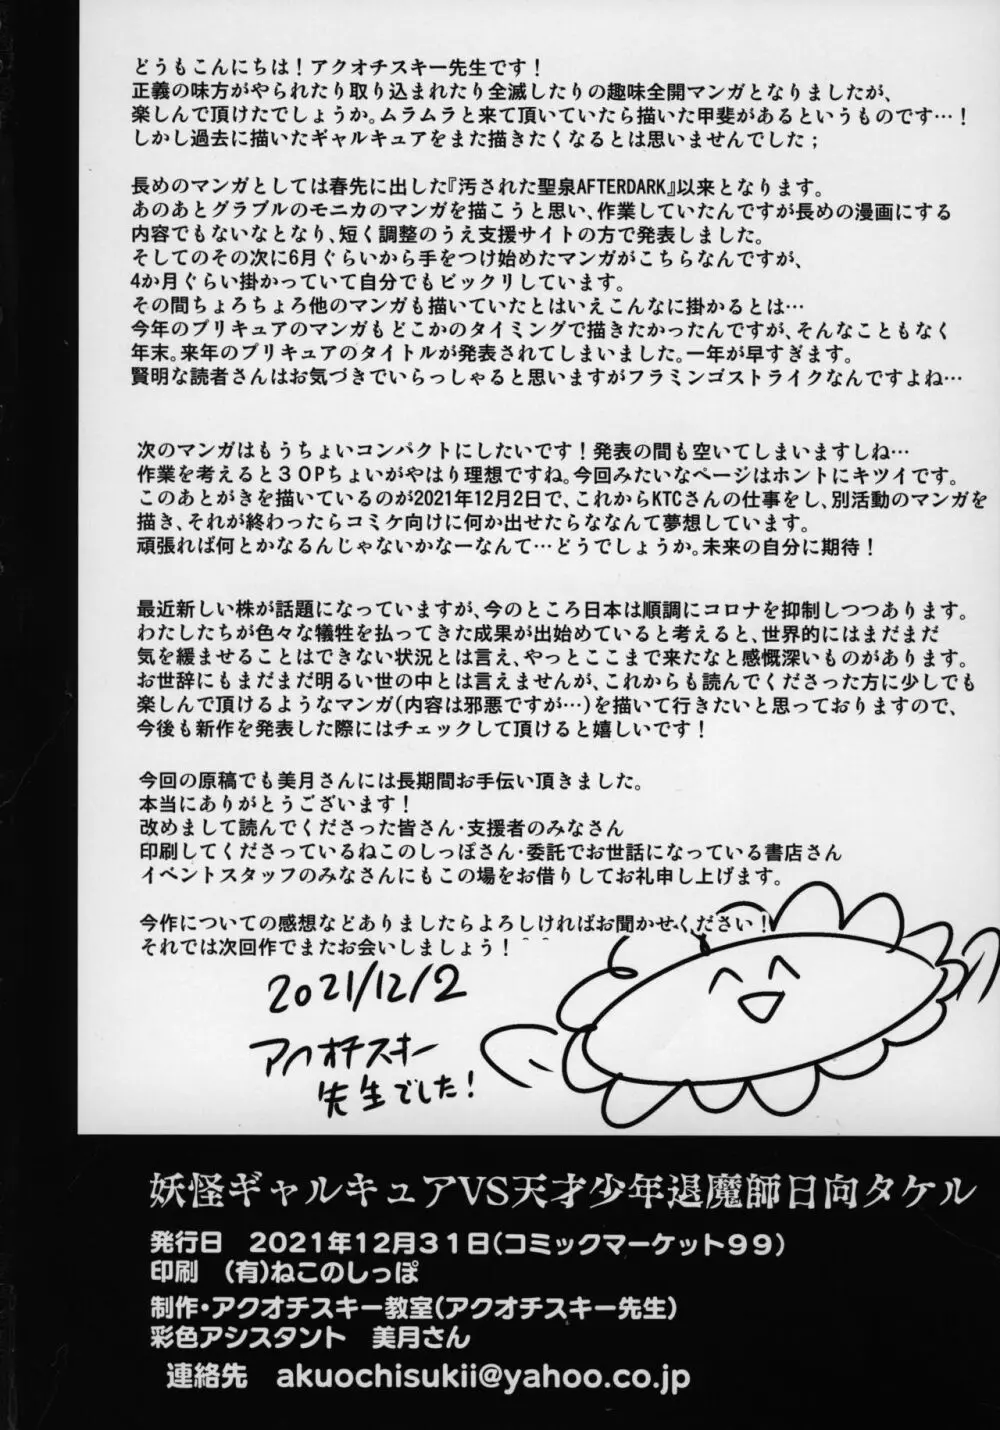 どうもこんにちは！アクオチスキー先生です！
正義の味方がやられたり取り込まれたり全滅したりの趣味全開マンガとなりましたが、
楽しんで頂けたでしょうか。ムラムラと来て頂いていたら描いた甲斐があるというものです…！
しかし過去に描いたギャルキュアをまた描きたくなるとは思いませんでした；
長めのマンガとしては春先に出した『汚された聖泉AFTERDARK』以来となります。
あのあとグラブルのモニカのマンガを描こうと思い、作業していたんですが長めの漫画にする
内容でもないなとなり、短く調整のうえ支援サイトの方で発表しました。
そしてのその次に6月ぐらいから手をつけ始めたマンガがこちらなんですが、
4か月ぐらい掛かっていて自分でもビックリしています。
その間ちょろちょろ他のマンガも描いていたとはいえこんなに掛かるとは…
今年のプリキュアのマンガもどこかのタイミングで描きたかったんですが、そんなこともなく
年末。来年のプリキュアのタイトルが発表されてしまいました。一年が早すぎます。
賢明な読者さんはお気づきでいらっしゃると思いますがフラミンゴストライクなんですよね…
次のマンガはもうちょいコンパクトにしたいです！発表の間も空いてしまいますしね…
作業を考えると３０Pちょいがやはり理想ですね。今回みたいなページはホントにキツイです。
このあとがきを描いているのが2021年12月2日で、これからKTCさんの仕事をし、別活動のマンガを
描き、それが終わったらコミケ向けに何か出せたらななんて夢想しています。
頑張れば何とかなるんじゃないかなーなんて…どうでしょうか。未来の自分に期待！
最近新しい株が話題になっていますが、今のところ日本は順調にコロナを抑制しつつあります。
わたしたちが色々な犠牲を払ってきた成果が出始めていると考えると、世界的にはまだまだ
気を緩ませることはできない状況とは言え、やっとここまで来たなと感慨深いものがあります。
お世辞にもまだまだ明るい世の中とは言えませんが、これからも読んでくださった方に少しでも
楽しんで頂けるようなマンガ(内容は邪悪ですが…)を描いて行きたいと思っておりますので、
今後も新作を発表した際にはチェックして頂けると嬉しいです！
今回の原稿でも美月さんには長期間お手伝い頂きました。
本当にありがとうございます！
改めまして読んでくださった皆さん・支援者のみなさん
印刷してくださっているねこのしっぽさん・委託でお世話になっている書店さん
イベントスタッフのみなさんにもこの場をお借りしてお礼申し上げます。
今作についての感想などありましたらよろしければお聞かせください！
それでは次回作でまたお会いしましょう！＾＾
2021/12/2
アクオチスキー
先生でした！
妖怪ギャルキュアVS天才少年退魔師日向タケル
発行日　２０２１年１２月３１日(コミックマーケット９９)
印刷　(有)ねこのしっぽ
制作・アクオチスキー教室(アクオチスキー先生)
彩色アシスタント　美月さん
連絡先　akuochisukii@yahoo.co.jp